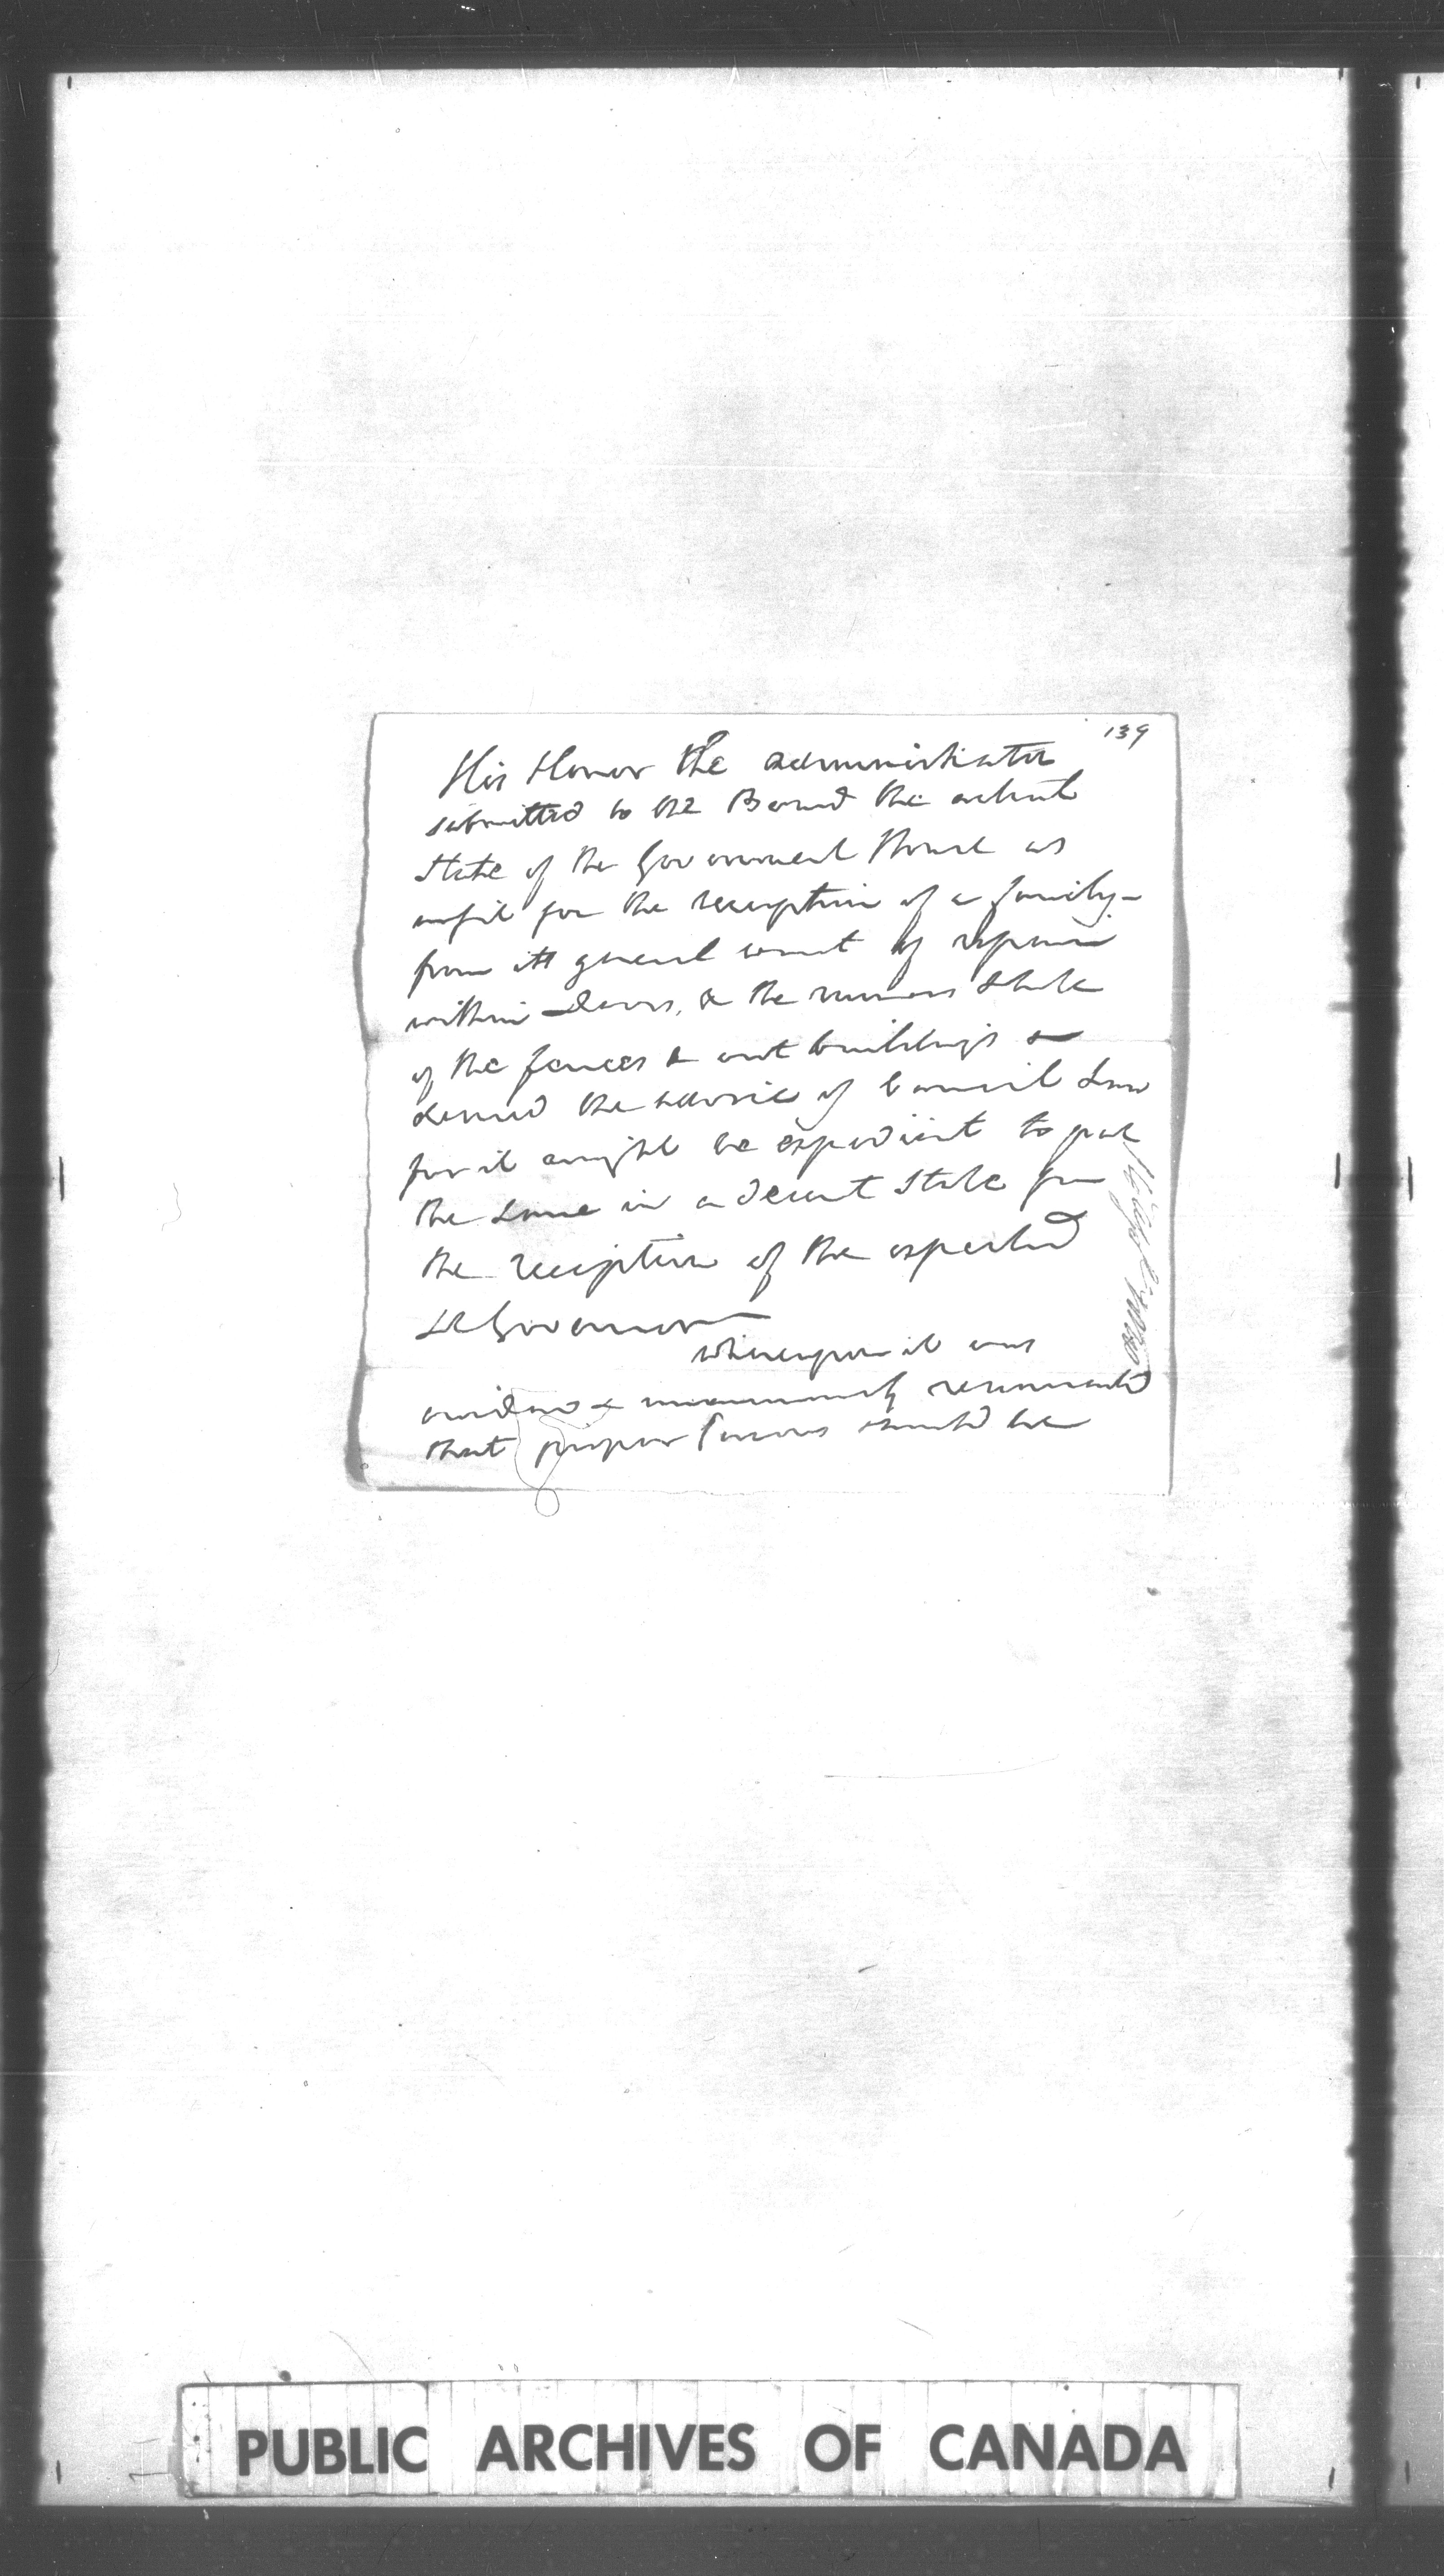 139
His Honor the administrator
submitted to the Board the actual
State of the Government House as
unfit for the reception of a family -
from its general want of repair
within doors, & the ruinous State
of the fences & out buildings &
desired the advice of Council how
far it might be expedient to put
the same in a decent State for
the reception of the expected
Lt Governor
whereupon it was
and unanimously recommended
that proper persons should be
PUBLIC ARCHIVES OF CANADA